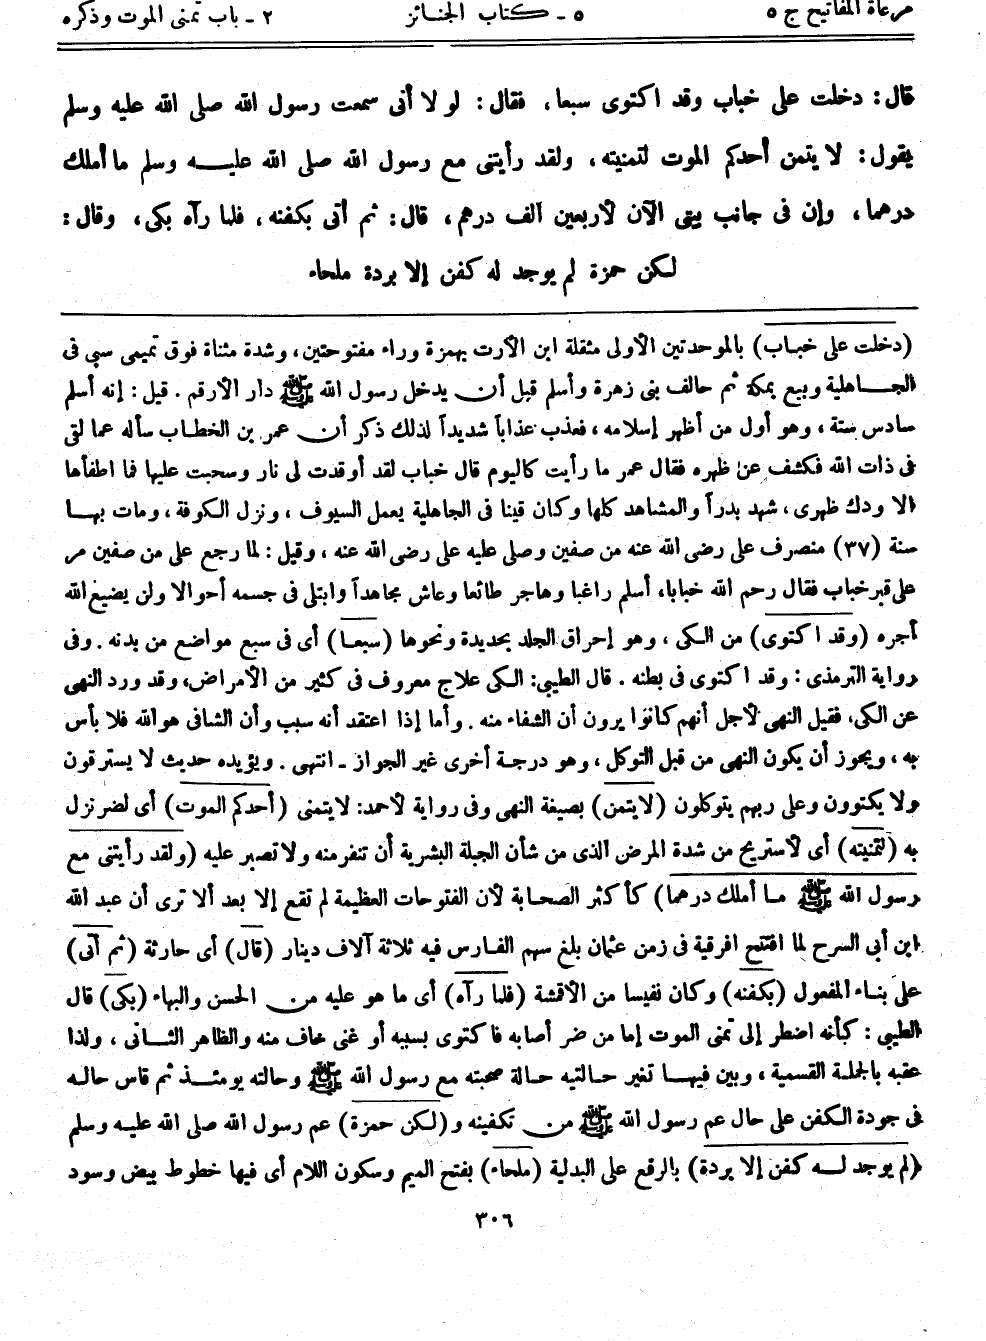 مرعاة المفاتيح ج ٥ ٥ - كتاب الجنائز ٢ - باب تمنى الموت وذكره
قال: دخلت على خباب وقد اكتوى سبعا، فقال: لو لا أنى سمعت رسول الله صلى الله عليه وسلم
يقول: لا يتمن أحدكم الموت لتمنيته، ولقد رأيتنى مع رسول الله صلى الله عليه وسلم ما أملك
درهما، وإن فى جانب بيتى الآن لأربعين ألف درهم، قال: ثم أتى بكفنه، فلما رآه بكى، وقال:
لكن حمزة لم يوجد له كفن إلا بردة ملحاء
(دخلت على خباب) بالموحدتين الأولى مثقلة ابن الأرت بهمزة وراء مفتوحتين، وشدة مثناة فوق تميمى سبى فى
الجاهلية وبيع بمكة ثم حالف بنى زهرة وأسلم قبل أن يدخل رسول الله ﷺ دار الأرقم. قيل: إنه أسلم
سادس ستة، وهو أول من أظهر إسلامه، فعذب عذاباً شديداً لذلك ذكر أن عمر بن الخطاب سأله عما لقى
فى ذات الله فكشف عن ظهره فقال عمر ما رأيت كاليوم قال خباب لقد أوقدت لى نار وسحبت عليها فما اطفأها
الا ودك ظهرى، شهد بدراً والمشاهد كلها وكان قينا فى الجاهلية يعمل السيوف، ونزل الكوفة، ومات بها
سنة (٣٧) منصرف على رضى الله عنه من صفين وصلى عليه على رضى الله عنه، وقيل: لما رجع على من صفين مر
على قبر خباب فقال رحم الله خبابا، أسلم راغبا وهاجر طائعا وعاش مجاهداً وابتلى فى جسمه أحوالا ولن يضيع الله
أجره (وقد اكتوى) من الكى، وهو إحراق الجلد بحديدة ونحوها (سبعا) أى فى سبع مواضع من بدنه. وفى
رواية الترمذى: وقد اكتوى فى بطنه. قال الطيبى: الكى علاج معروف فى كثير من الأمراض، وقد ورد النهى
عن الكى، فقيل النهى لأجل أنهم كانوا يرون أن الشفاء منه. وأما إذا اعتقد أنه سبب وأن الشافى هو الله فلا بأس
به، ويجوز أن يكون النهى من قبل التوكل، وهو درجة أخرى غير الجواز - انتهى. ويؤيده حديث لا يسترقون
ولا يكتوون وعلى ربهم يتوكلون (لا يتمن) بصيغة النهى وفى رواية لأحمد: لا يتمنى (أحدكم الموت) أى لضر نزل
به (لتمنيته) أى لأستريح من شدة المرض الذى من شأن الجبلة البشرية أن تنفر منه ولا تصبر عليه (ولقد رأيتنى مع
رسول الله ﷺ ما أملك درهما) كأكثر الصحابة لأن الفتوحات العظيمة لم تقع إلا بعد ألا ترى أن عبد الله
ابن أبى السرح لما افتتح افرقية فى زمن عثمان بلغ سهم الفارس فيه ثلاثة آلاف دينار (قال) أى حارثة (ثم أتى)
على بناء المفعول (بكفنه) وكان نفيسا من الأقشة (فلما رآه) أى ما هو عليه من الحسن والبهاء (بكى) قال
الطيبى: كأنه اضطر إلى تمنى الموت إما من ضر أصابه فاكتوى بسببه أو غنى خاف منه والظاهر الثانى، ولذا
عقبه بالجملة القسمية، وبين فيها تغير حالتيه حالة صحبته مع رسول الله ﷺ وحالته يومئذ ثم قاس حاله
فى جودة الكفن على حال عم رسول الله ﷺ من تكفينه و(لكن حمزة) عم رسول الله صلى الله عليه وسلم
(لم يوجد له كفن إلا بردة) بالرفع على البدلية (ملحاء) بفتح الميم وسكون اللام أى فيها خطوط بيض وسود
٣٠٦